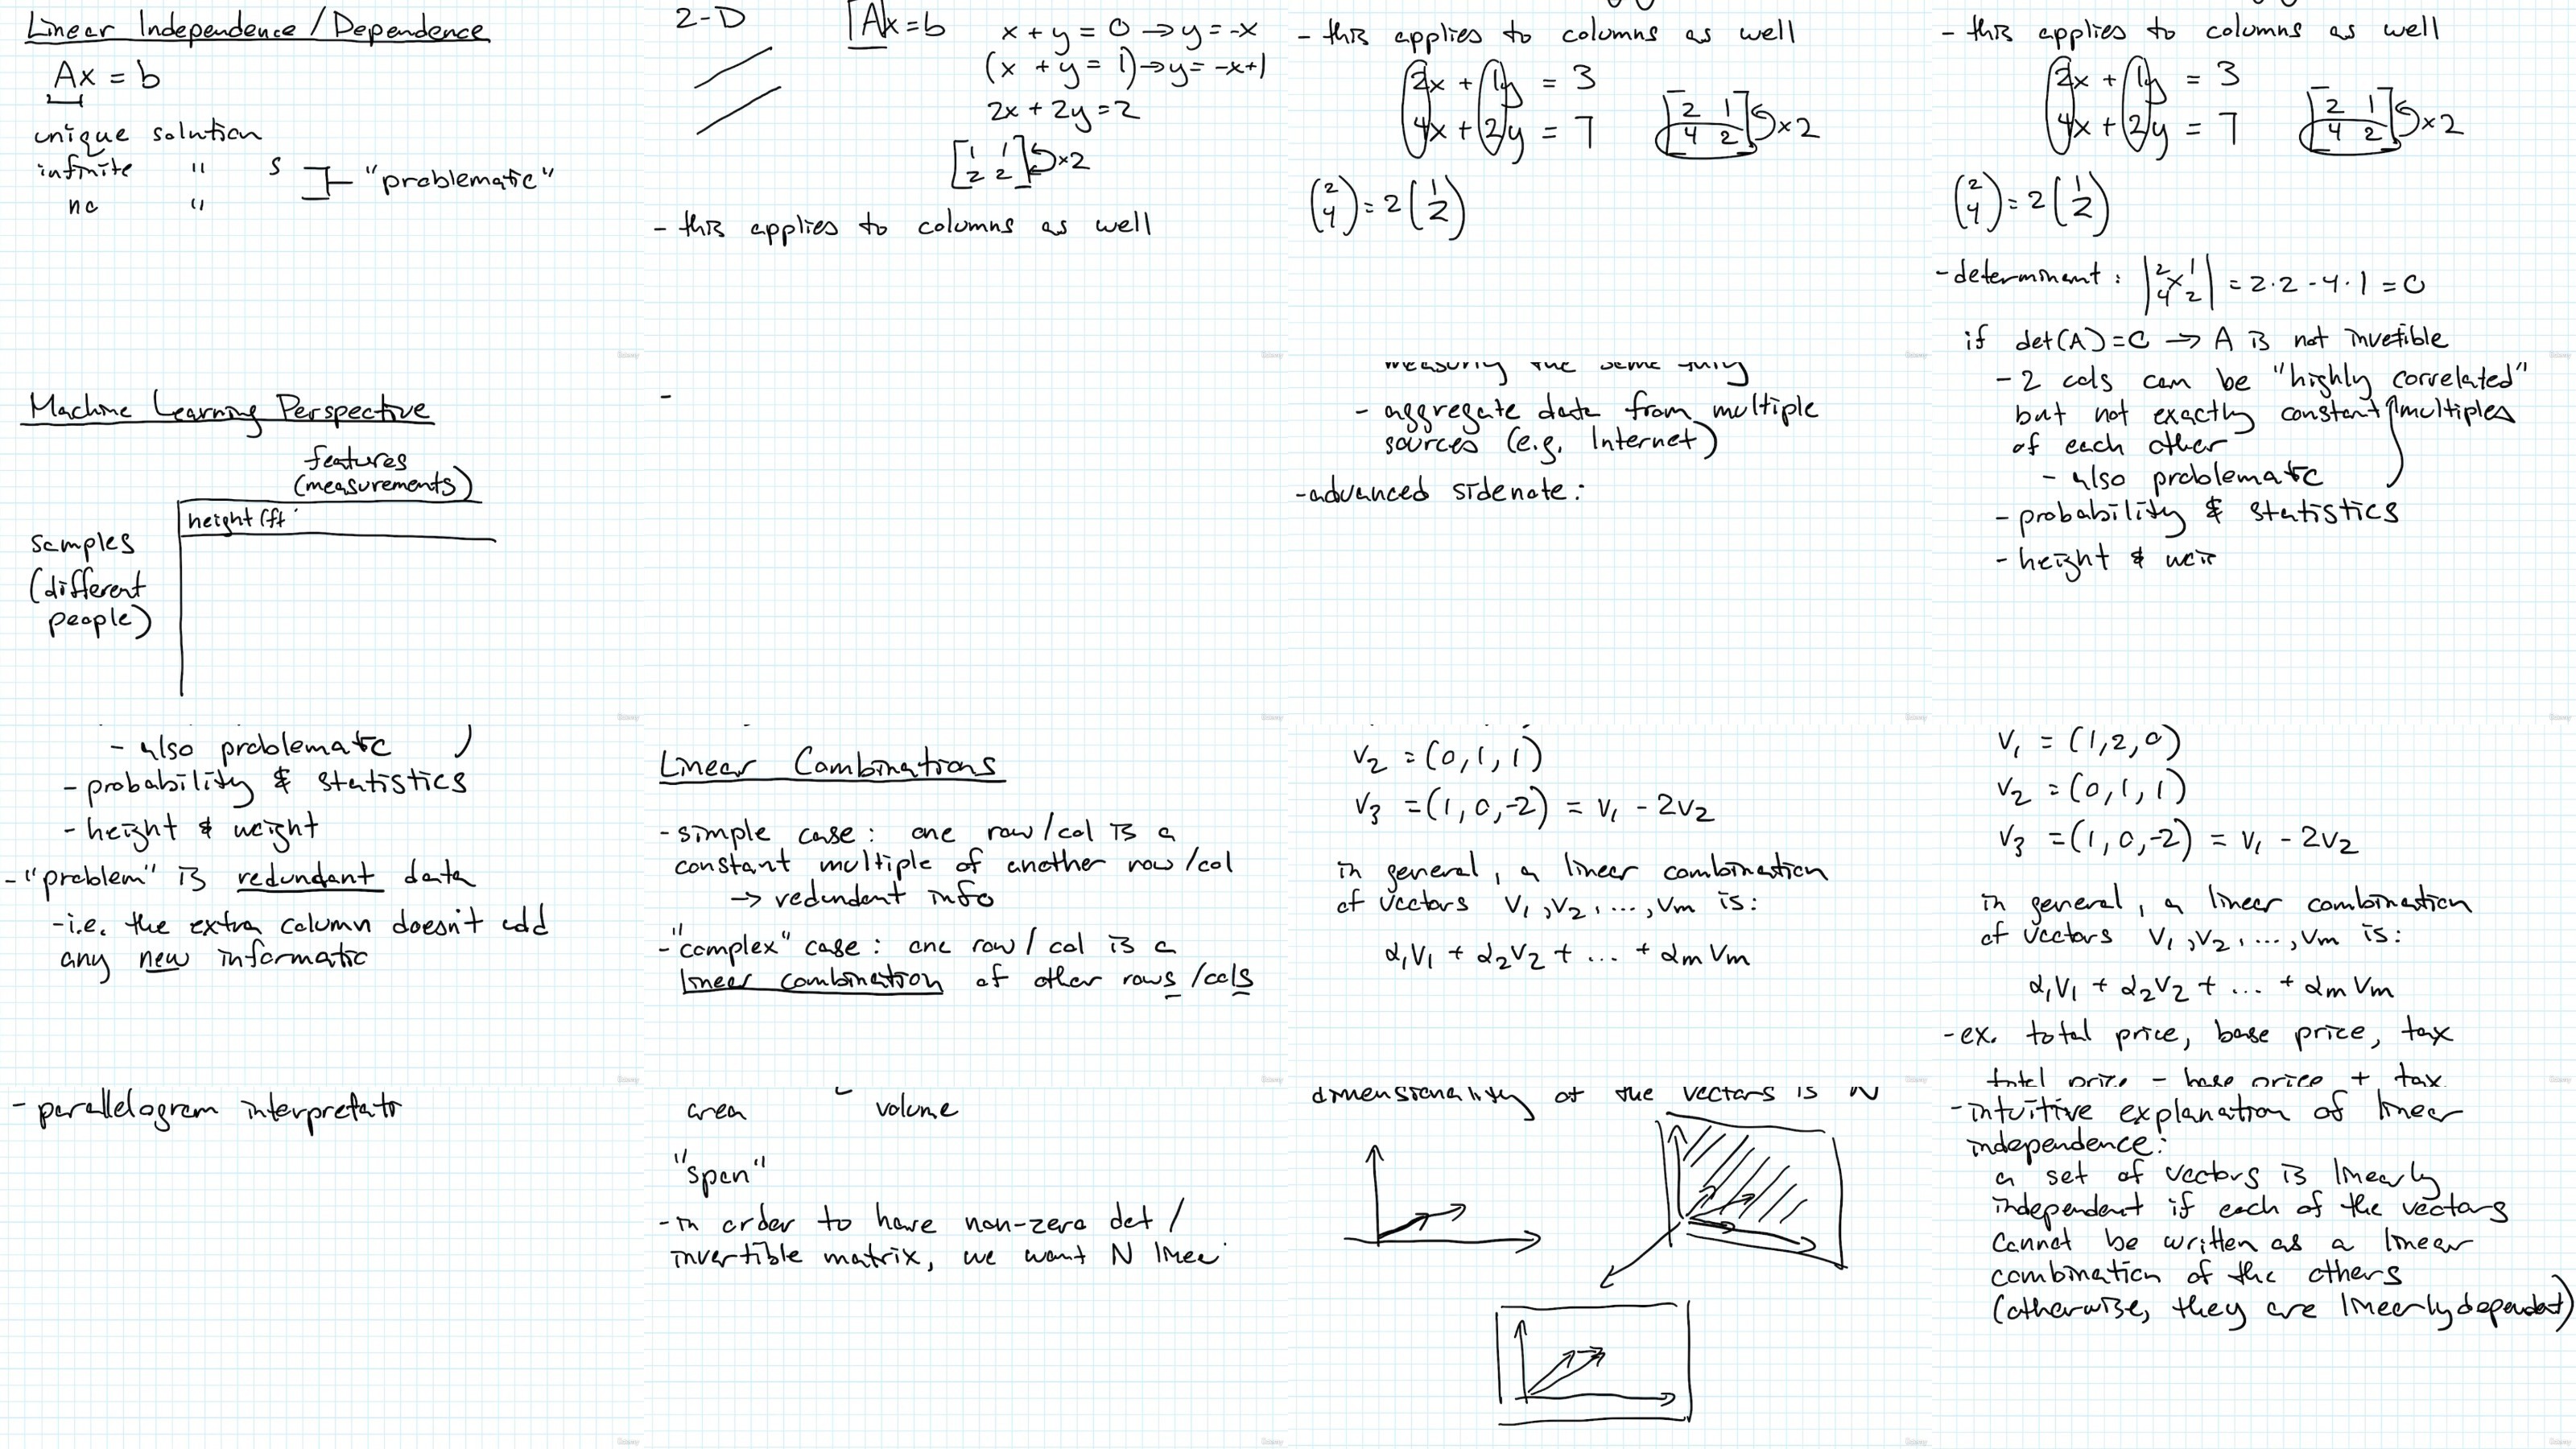 Linear Independence / Dependence
Ax = b
unique solution
infinite " s
no "
"problematic"
2-D
Ax = b
x + y = 0 → y = -x
(x + y = 1) → y = -x+1
2x + 2y = 2
[1 1
2 2] x2
- this applies to columns as well
- this applies to columns as well
2x + 1y = 3
4x + 2y = 7
[2 1
4 2] x2
(2 4) = 2 (1 2)
- this applies to columns as well
2x + 1y = 3
4x + 2y = 7
[2 1
4 2] x2
(2 4) = 2 (1 2)
- determinant : |2 1
4 2| = 2·2 - 4·1 = 0
if det(A) = 0 → A is not invetible
Machine Learning Perspective
features
(measurements)
height (ft
samples
(different
people)
-
- aggregate data from multiple
sources (e.g. Internet)
- advanced sidenote :
- 2 cols can be "highly correlated"
but not exactly constant multiples
of each other
- also problematic
- probability & statistics
- height & wei
- also problematic
- probability & statistics
- height & weight
- "problem" is redundant data
- i.e. the extra column doesn't add
any new informatio
Linear Combinations
- simple case : one row/col is a
constant multiple of another row/col
→ redundent info
- "complex" case : one row / col is a
linear combination of other rows / cols
v2 = (0, 1, 1)
v3 = (1, 0, -2) = v1 - 2v2
in general, a linear combination
of vectors v1, v2, ..., vm is:
α1v1 + α2v2 + ... + αmvm
v1 = (1, 2, 0)
v2 = (0, 1, 1)
v3 = (1, 0, -2) = v1 - 2v2
in general, a linear combination
of vectors v1, v2, ..., vm is:
α1v1 + α2v2 + ... + αmvm
- ex. total price, base price, tax
total price = base price + tax
- parallelogram interpretati
area volume
"span"
- in order to have non-zero det /
invertible matrix, we want N linea
dimensionality of the vectors is N
- intuitive explanation of linear
independence:
a set of vectors is linearly
independent if each of the vectors
cannot be written as a linear
combination of the others
(otherwise, they are linearly dependent)